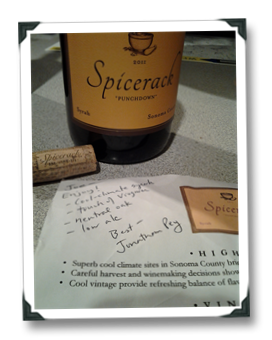 2011
Spicerack
"PUNCHDOWN"
Syrah
Sonoma
Spicerack
Enjoy!
- Cool climate syrah
- touch of Viognier
- neutral oak
- low alc
Best -
Jonathan Pey
Spicerack
• HIGH
• Superb cool climate sites in Sonoma County
• Careful harvest and winemaking decisions
• Cool vintage provide refreshing balance of
• VIN